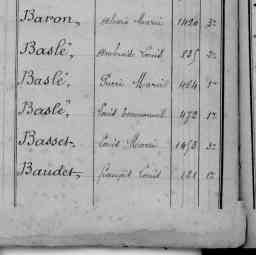 Baron, Marie 1420 3e
Baslé, Ambroise Louis 235 2e
Baslé, Pierre Marie 464 1e
Baslé, Louis Emmanuel 472 1e
Basset, Louis Marie 1453 3e
Baudet, François Louis 121 1e